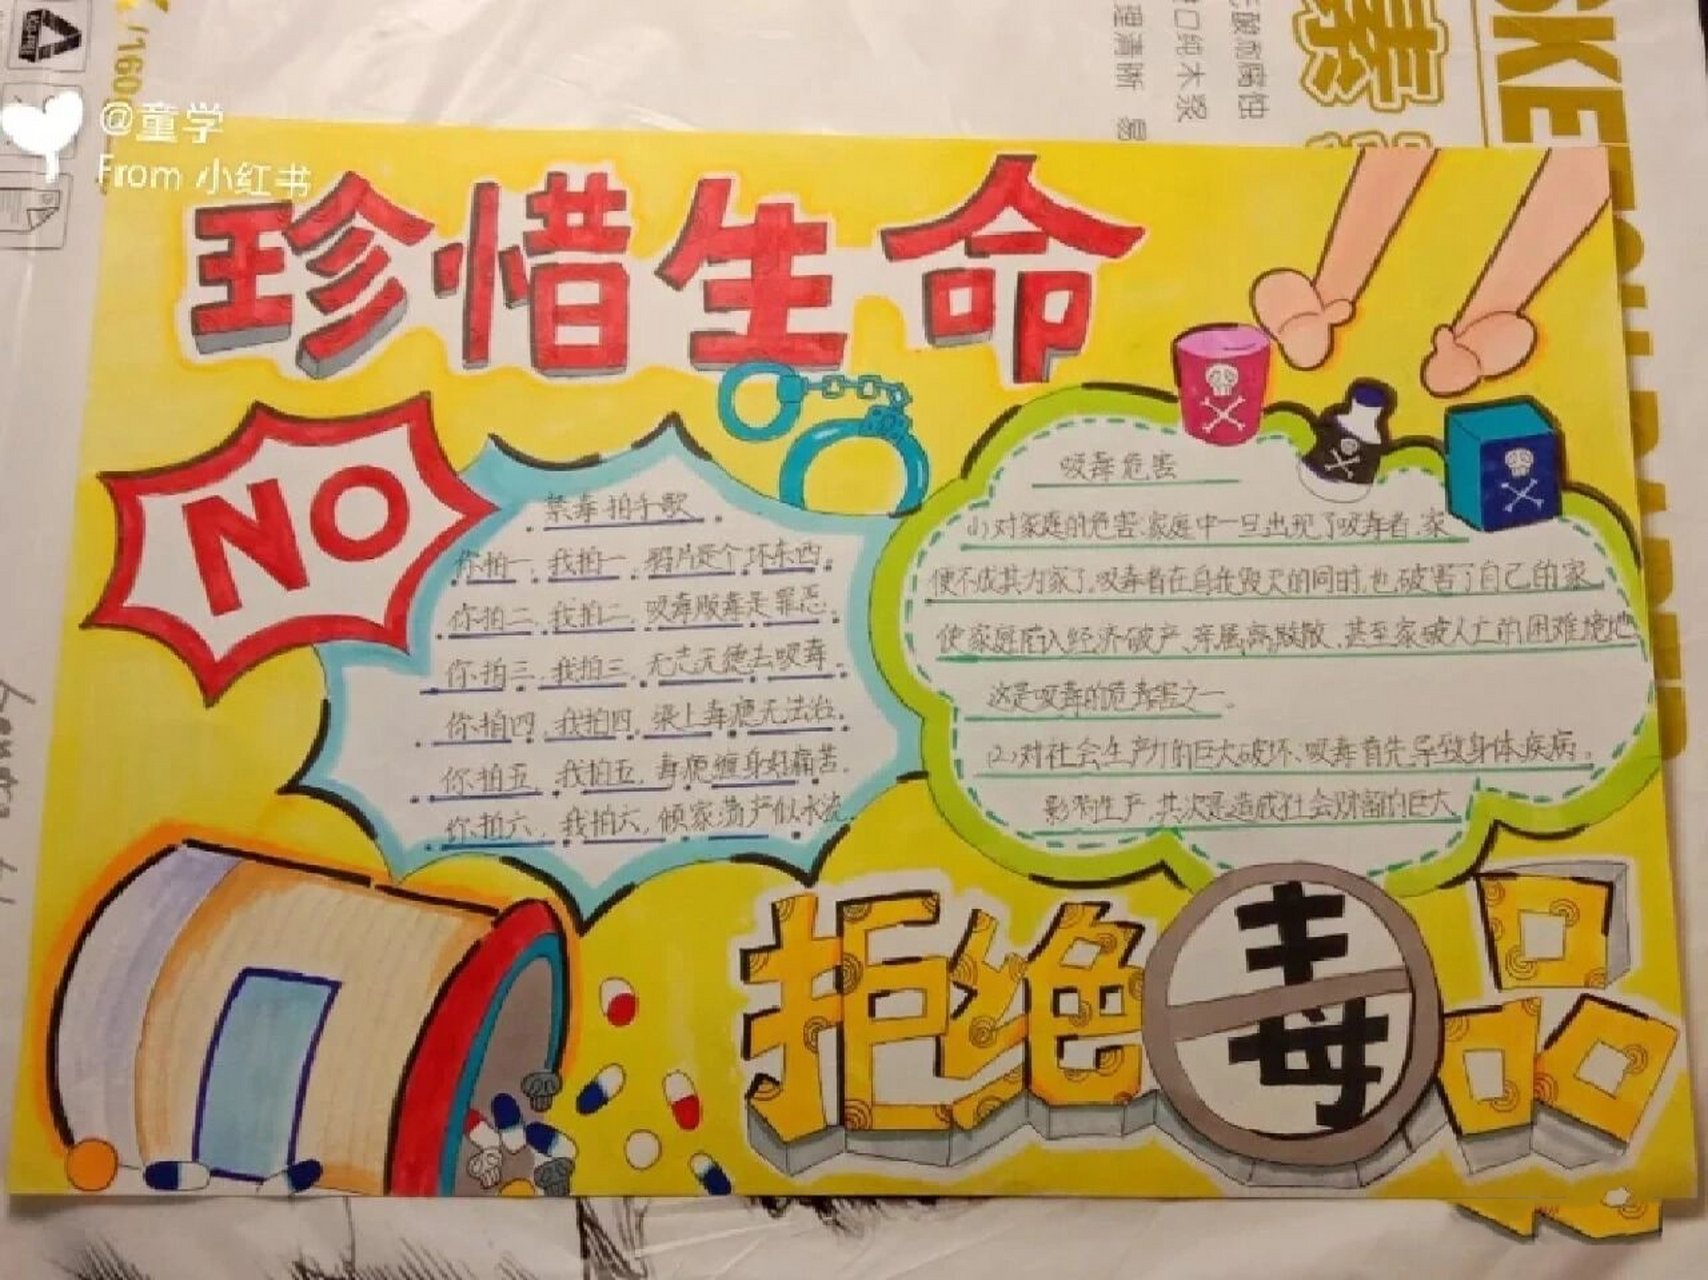 @童学
From 小红书
珍惜生命
NO
禁毒拍手歌
你拍一,我拍一,鸦片是个坏东西。
你拍二,我拍二,吸毒贩毒是罪恶。
你拍三,我拍三,无志无德去吸毒。
你拍四,我拍四,染上毒瘾无法治。
你拍五,我拍五,毒瘾缠身好痛苦.
你拍六,我拍六,倾家荡产似水流.
吸毒危害
(1)对家庭的危害:家庭中一旦出现了吸毒者,家
便不成其为家了。吸毒者在自我毁灭的同时,也破害了自己的家
使家庭陷入经济破产、亲属离散散、甚至家破人亡的困难境地
这是吸毒的危害之一。
(2)对社会生产力的巨大破坏、吸毒首先导致身体疾病。
影响生产,其次是造成社会财富的巨大
拒绝毒品
口纯木浆
理清晰 易
SKE
素